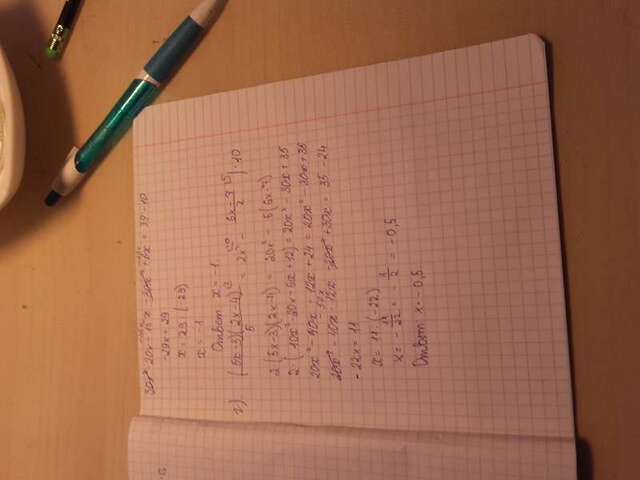 30x² - 20x - 15x - 30x² + 6x = 39 - 10
-29x = 29
x = 29 : (-29)
x = -1
Ответ x = -1.
г) (5x-3)(2x-4)/5 = 2x² - 6x-7/2 | · 10
2(5x-3)(2x-4) = 20x² - 5(6x-7)
2 · (10x² - 20x - 6x + 12) = 20x² - 30x + 35
20x² - 40x - 12x + 24 = 20x² - 30x + 35
20x² - 40x - 12x - 20x² + 30x = 35 - 24
-22x = 11
x = 11 : (-22)
x = - 11/22 = - 1/2 = -0,5
Ответ x = -0,5